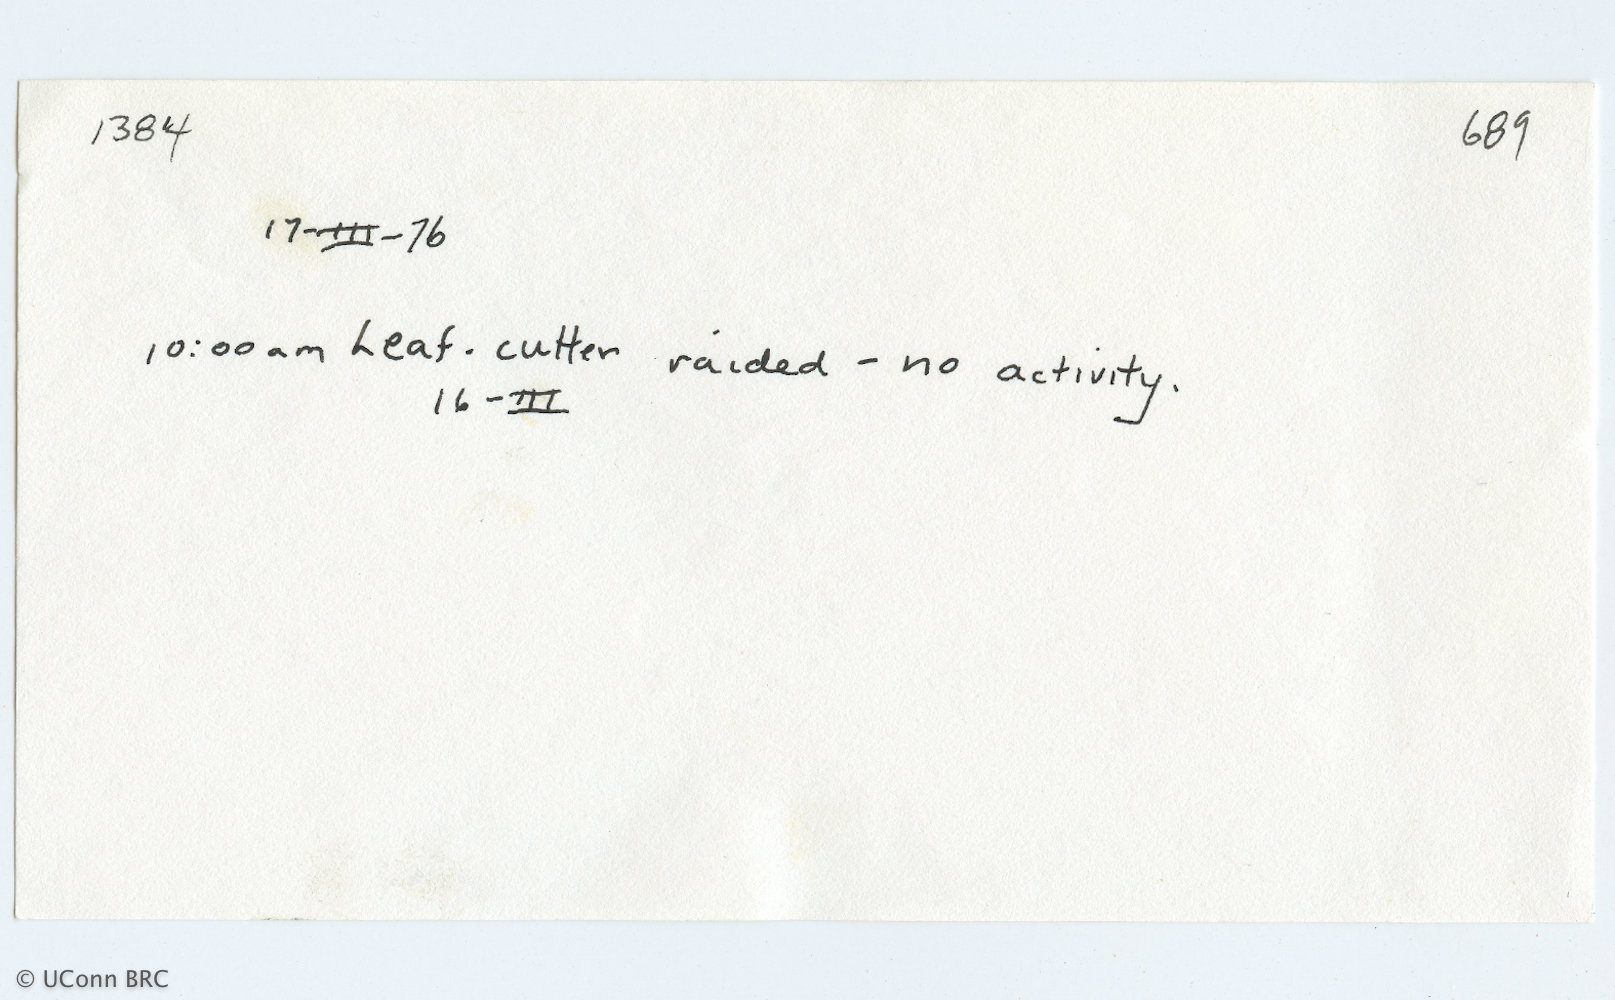 1384 689
17-III-76
10:00am Leaf-cutter raided - no activity.
16-III
© UConn BRC